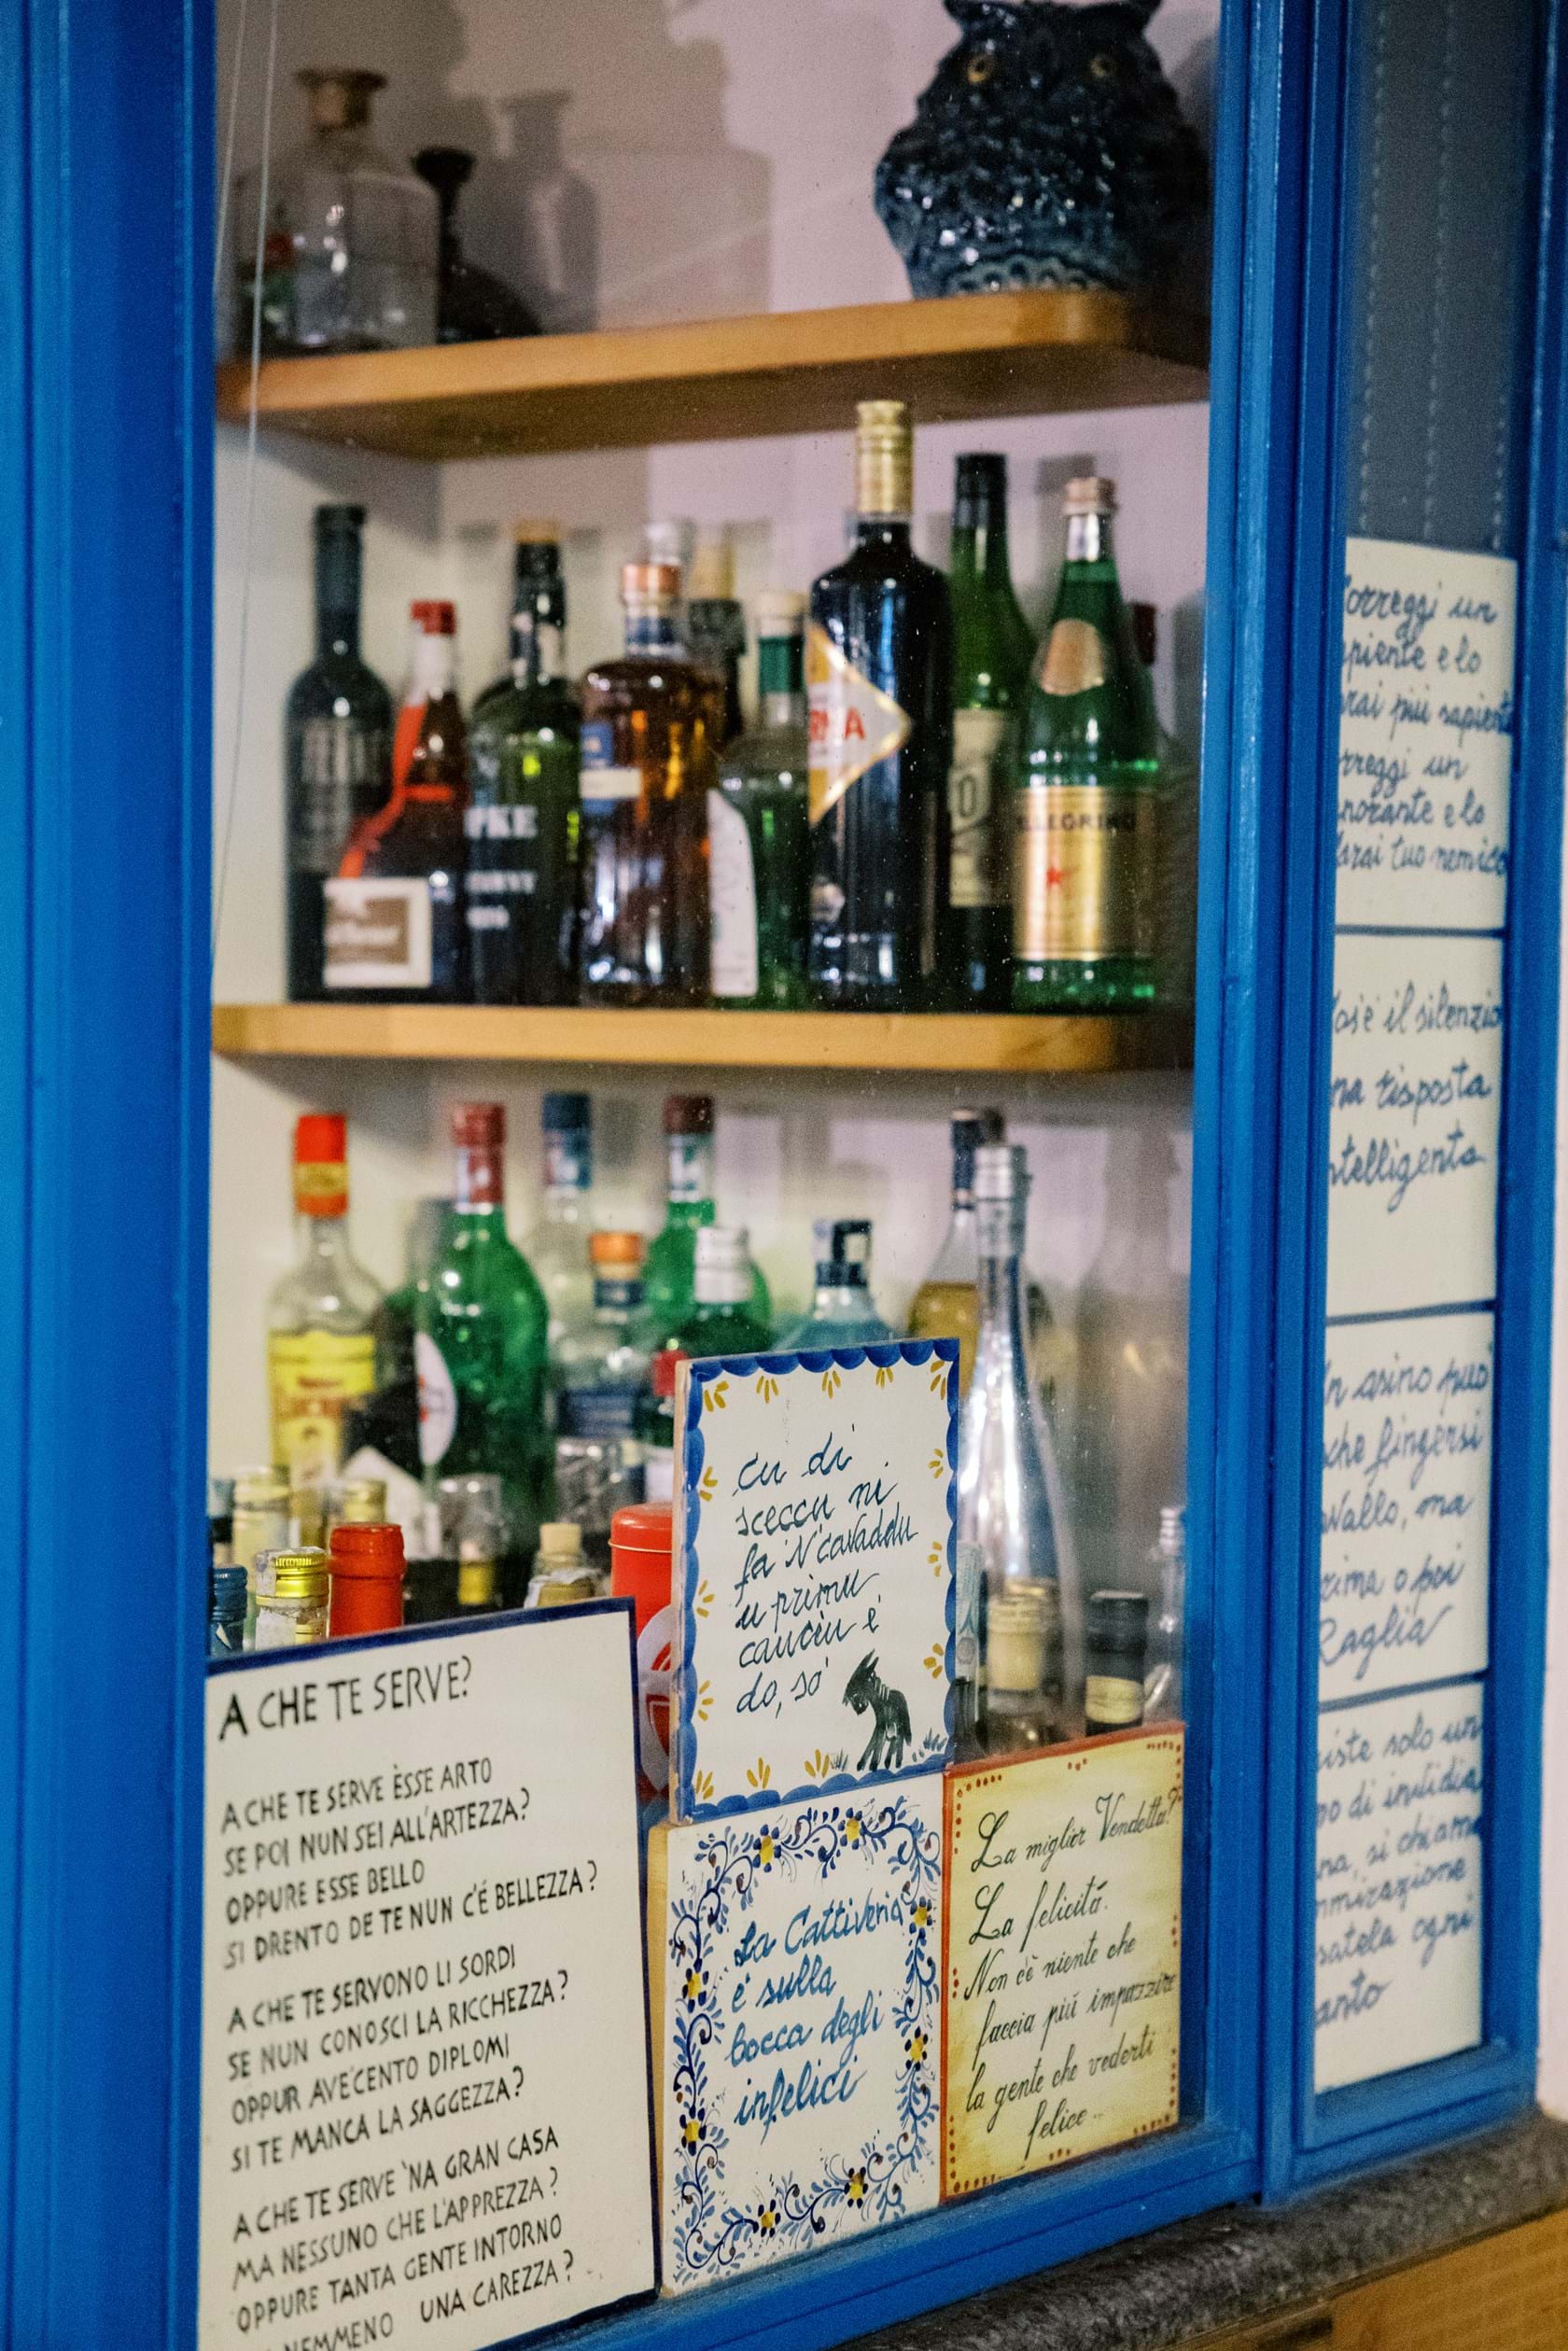 A CHE TE SERVE?
A CHE TE SERVE ÈSSE ARTO
SE POI NUN SEI ALL'ARTEZZA?
OPPURE ESSE BELLO
SI DRENTO DE TE NUN C'É BELLEZZA?
A CHE TE SERVONO LI SORDI
SE NUN CONOSCI LA RICCHEZZA?
OPPUR AVE CENTO DIPLOMI
SI TE MANCA LA SAGGEZZA?
A CHE TE SERVE 'NA GRAN CASA
MA NESSUNO CHE L'APPREZZA?
OPPURE TANTA GENTE INTORNO
NEMMENO UNA CAREZZA?
Cu di
sceccu ni
fa 'N cavaddu
u primu
cauciu é
do, so'
La Cattiveria
é sulla
bocca degli
infelici
La miglior Vendetta?
La felicitá.
Non c'è niente che
faccia piú impazzire
la gente che vederti
felice..
orreggi un
piente e lo
rai piú sapiente
rreggi un
norante e lo
arai tuo nemico
os'è il silenzio
na risposta
ntelligente
n asino puó
che fingersi
vallo, ma
rima o poi
Raglia
iste solo un
po di invidia
na, si chiama
mmirazione
satela ogni
anto
LLEGRINO